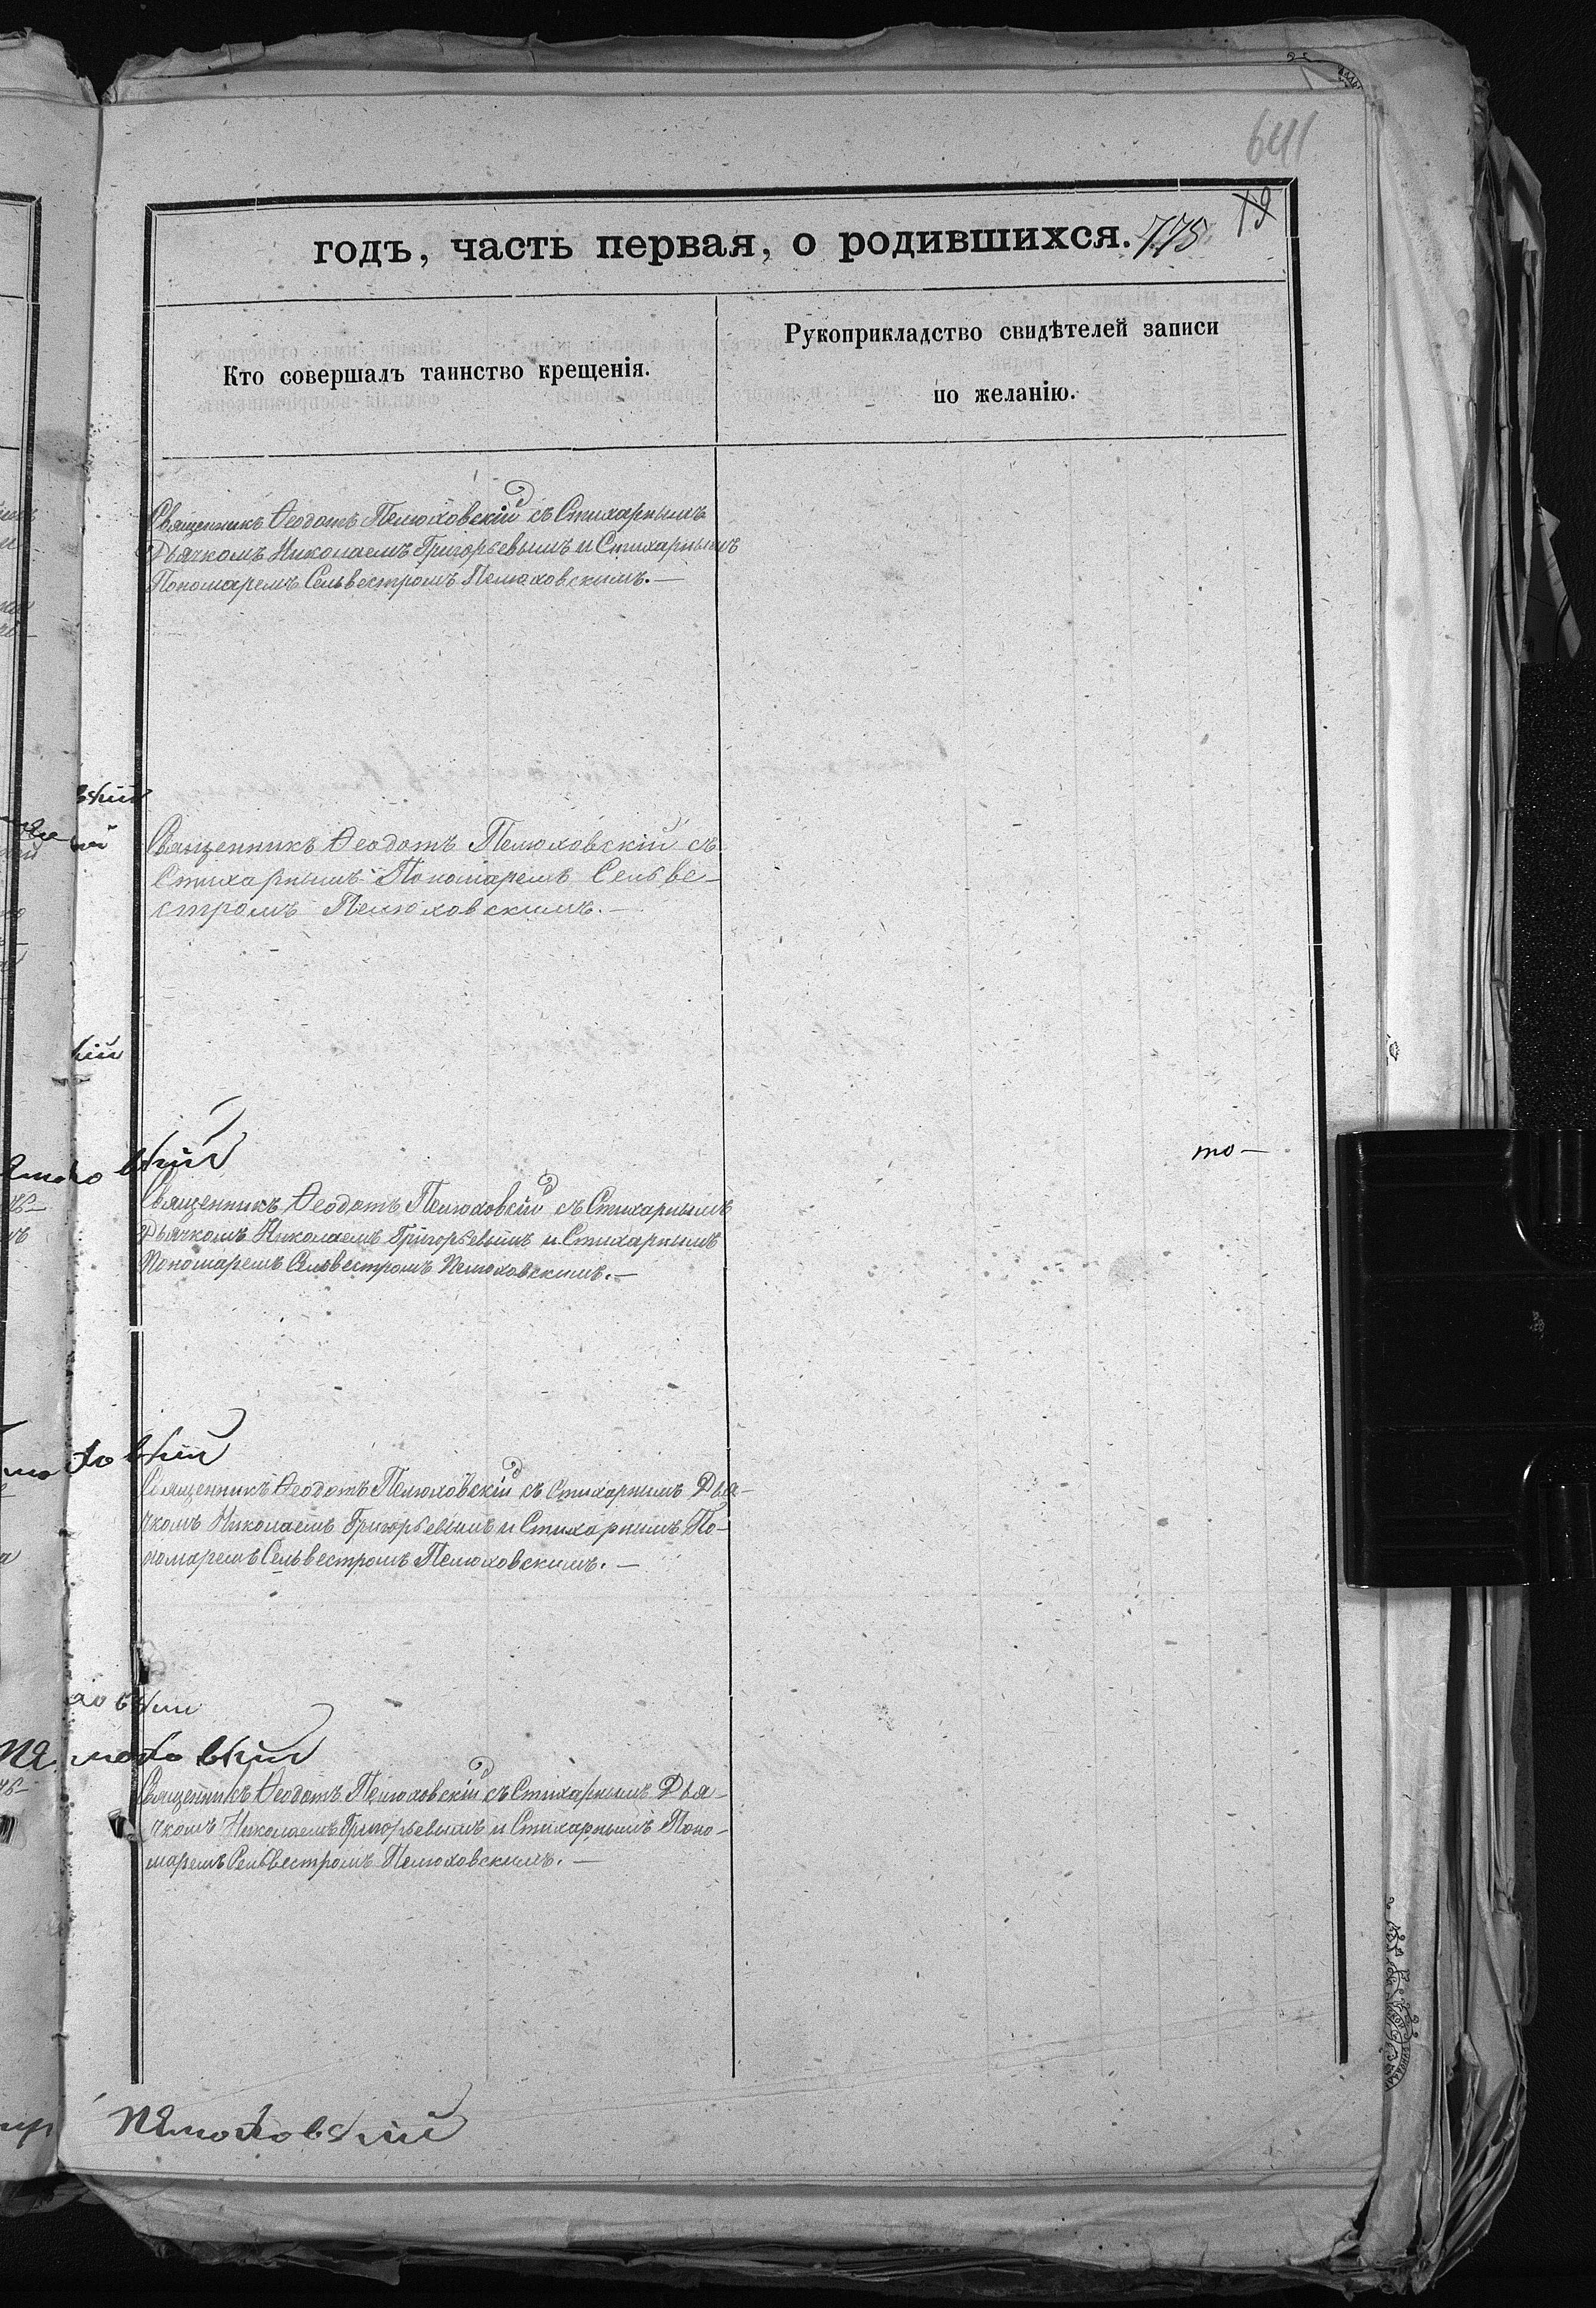 641
19
годъ, часть первая, о родившихся. 775
Кто совершалъ таинство крещенія.
Рукоприкладство свидѣтелей записи
по желанію.
Священникъ Ѳеодотъ Пелюховскій съ Стихарнымъ
Дьячкомъ Николаемъ Григорьевымъ и Стихарнымъ
Пономаремъ Сельвестромъ Пелюховскимъ. —
Священникъ Ѳеодотъ Пелюховскій съ
Стихарнымъ Пономаремъ Сельве-
стромъ Пелюховскимъ. —
то —
Священникъ Ѳеодотъ Пелюховскій съ Стихарнымъ
Дьячкомъ Николаемъ Григорьевымъ и Стихарнымъ
Пономаремъ Селвестромъ Пелюховскимъ. —
Священникъ Ѳеодотъ Пелюховскій съ Стихарнымъ Дья-
чкомъ Николаемъ Григорьевымъ и Стихарнымъ По-
номаремъ Сельвестромъ Пелюховскимъ. —
Священникъ Ѳеодотъ Пелюховскій съ Стихарнымъ Дья-
чкомъ Николаемъ Григорьевымъ и Стихарнымъ Поно-
маремъ Сельвестромъ Пелюховскимъ. —
Пелюховскій